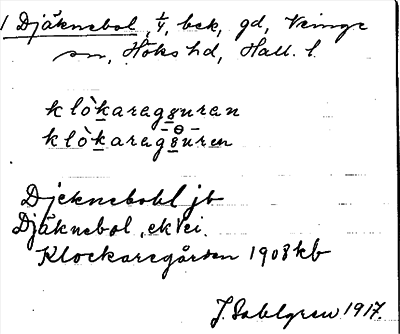 1 Djäknebol, 1/4, bek, gd, Veinge
sn, Höks hd, Hall. l.
klò̀karagguran
klòkaragguren
Djeknebohl jb
Djäknebol, ekVei.
Klockaregården 1908 kb
J. Sahlgren 1917.